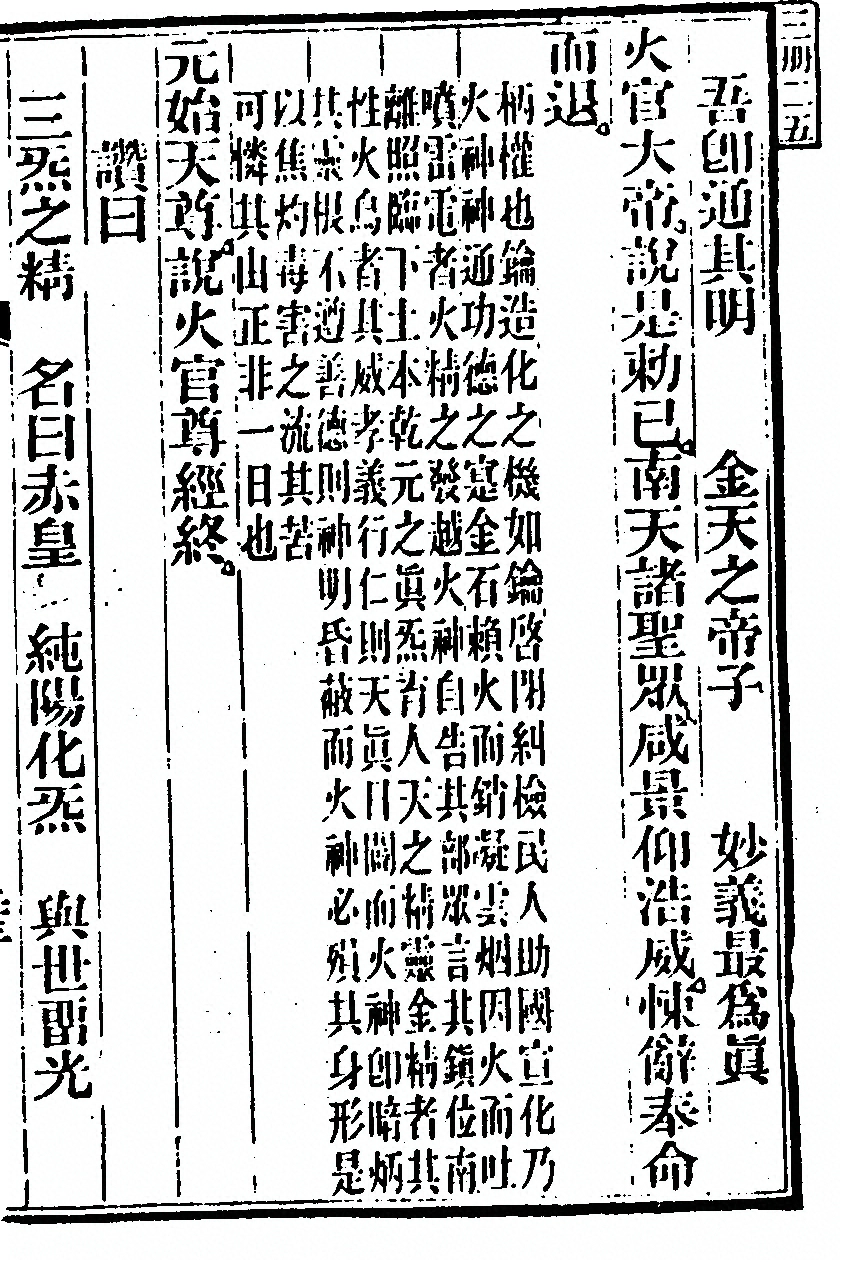 三册二五
吾卽通其明 金天之帝子 妙義最爲眞
火官大帝說是勅已南天諸聖眾咸景仰浩威悚辭奉命
而退
柄權也鑰造化之機如鑰啓閉糾檢民人助國宣化乃
火神神通功德之寔金石賴火而銷凝雲烟因火而吐
噴雷電者火精之發越火神自告其部眾言其鎭位南
離照臨下土本乾元之眞炁育人天之精靈金精者其
性火烏者其威孝義行仁則天眞日闢而火神卽暗炳
其靈根不遵善德則神明昏蔽而火神必殞其身形是
以焦灼毒害之流其苦
可憐其由正非一日也
元始天尊說火官尊經終
讚曰
三炁之精 名曰赤皇 純陽化炁 與世畱光